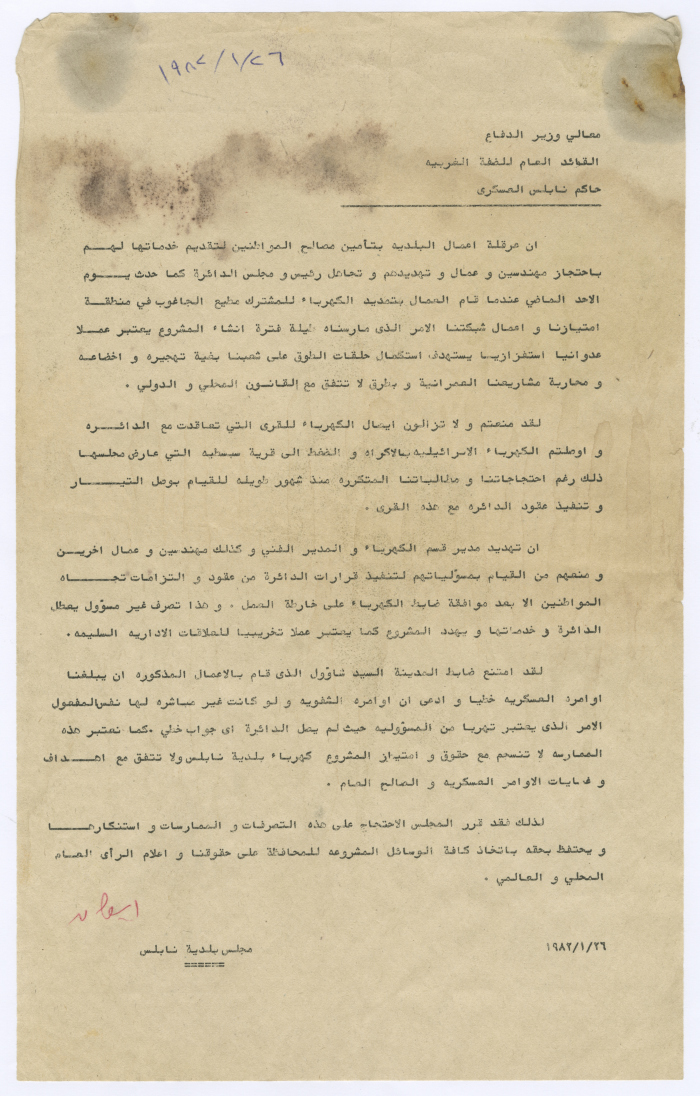 ١٩٨٢/١/٢٦
معالي وزير الدفاع
القائد العام للضفة الغربيه
حاكم نابلس العسكرى
ان عرقلة اعمال البلديه بتأمين مصالح المواطنين لتقديم خدماتها لهم
باحتجاز مهندسين و عمال و تهديدهم و تجاهل رئيس و مجلس الدائرة كما حدث يوم
الاحد الماضي عندما قام العمال بتمديد الكهرباء للمشترك مطيع الجاغوب في منطقة
امتيازنا و اعمال شبكتنا الامر الذى مارسناه طيلة فترة انشاء المشروع يعتبر عملا
عدوانيا استفزازيا يستهدف استكمال حلقات الطوق على شعبنا بغية تهجيره و اخضاعه
و محاربة مشاريعنا العمرانية و بطرق لا تتفق مع القانون المحلي و الدولي .
لقد منعتم و لا تزالون ايصال الكهرباء للقرى التي تعاقدت مع الدائره
و اوصلتم الكهرباء الاسرائيليه بالاكراه و الضغط الى قرية سبسطيه التي عارض مجلسها
ذلك رغم احتجاجاتنا و مطالباتنا المتكرره منذ شهور طويله للقيام بوصل التيار
و تنفيذ عقود الدائره مع هذه القرى .
ان تهديد مدير قسم الكهرباء و المدير الفني و كذلك مهندسين و عمال اخرين
و منعهم من القيام بمسؤلياتهم لتنفيذ قرارات الدائرة من عقود و التزامات تجاه
المواطنين الا بعد موافقة ضابط الكهرباء على خارطة العمل . و هذا تصرف غير مسؤول يعطل
الدائرة و خدماتها و يهدد المشروع كما يعتبر عملا تخريبيا للعلاقات الاداريه السليمه.
لقد امتنع ضابط المدينة السيد شاؤول الذى قام بالاعمال المذكوره ان يبلغنا
اوامره العسكريه خطيا و ادعى ان اوامره الشفويه و لو كانت غير مباشره لها نفس المفعول
الامر الذى يعتبر تهربا من المسؤوليه حيث لم يصل الدائرة اى جواب خطي .كما نعتبر هذه
الممارسه لا تنسجم مع حقوق و امتياز المشروع كهرباء بلدية نابلس ولا تتفق مع اهداف
و غايات الاوامر العسكريه و الصالح العام .
لذلك فقد قرر المجلس الاحتجاج على هذه التصرفات و الممارسات و استنكارها
و يحتفظ بحقه باتخاذ كافة الوسائل المشروعه للمحافظة على حقوقنا و اعلام الرأى العام
المحلي و العالمي .
١٩٨٢/١/٢٦
مجلس بلدية نابلس